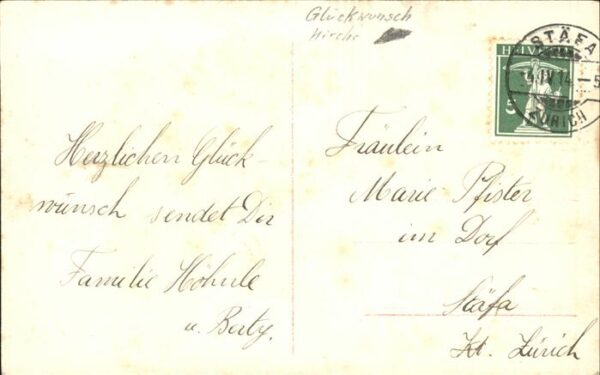 Glückwunsch
Kirche
STÄFA
HELVETIA
4.IV.14.-5
5
ZÜRICH
Herzlichen Glück-
wunsch sendet Dir
Familie Höhnle
u. Berty.
Fräulein
Marie Pfister
im Dorf
Stäfa
Kt. Zürich